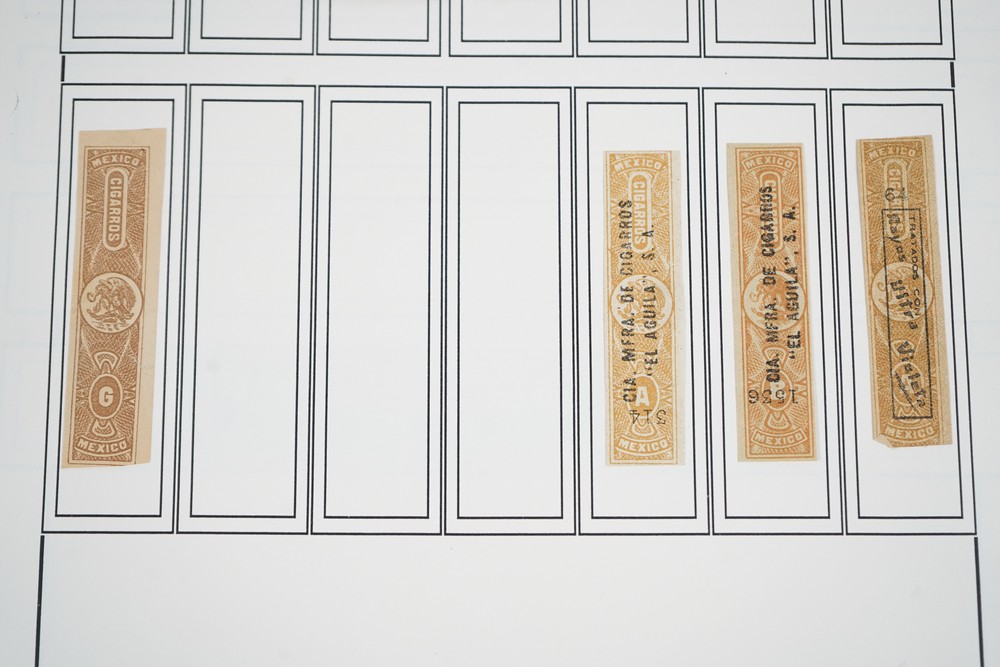 MEXICO
CIGARROS
G
MEXICO
MEXICO
CIGARROS
A
MEXICO
CIA. MFRA. DE CIGARROS
"EL AGUILA", S. A.
314
MEXICO
MEXICO
CIA. MFRA. DE CIGARROS
"EL AGUILA", S. A.
1536
MEXICO
TRATADOS CON
MEXICO